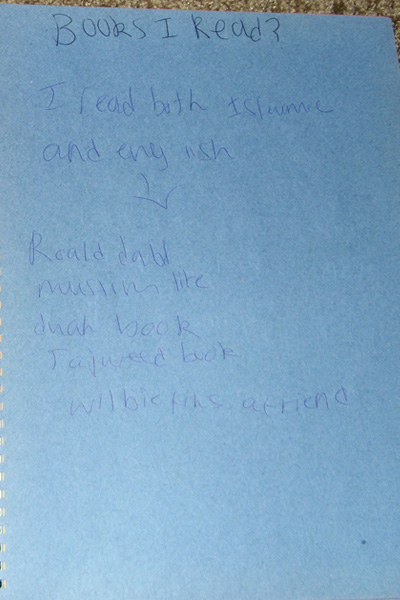 Books I Read?
I read both Islamic
and english
Roald dahl
muslims life
duah book
Tajweed book
wilbie finds a friend